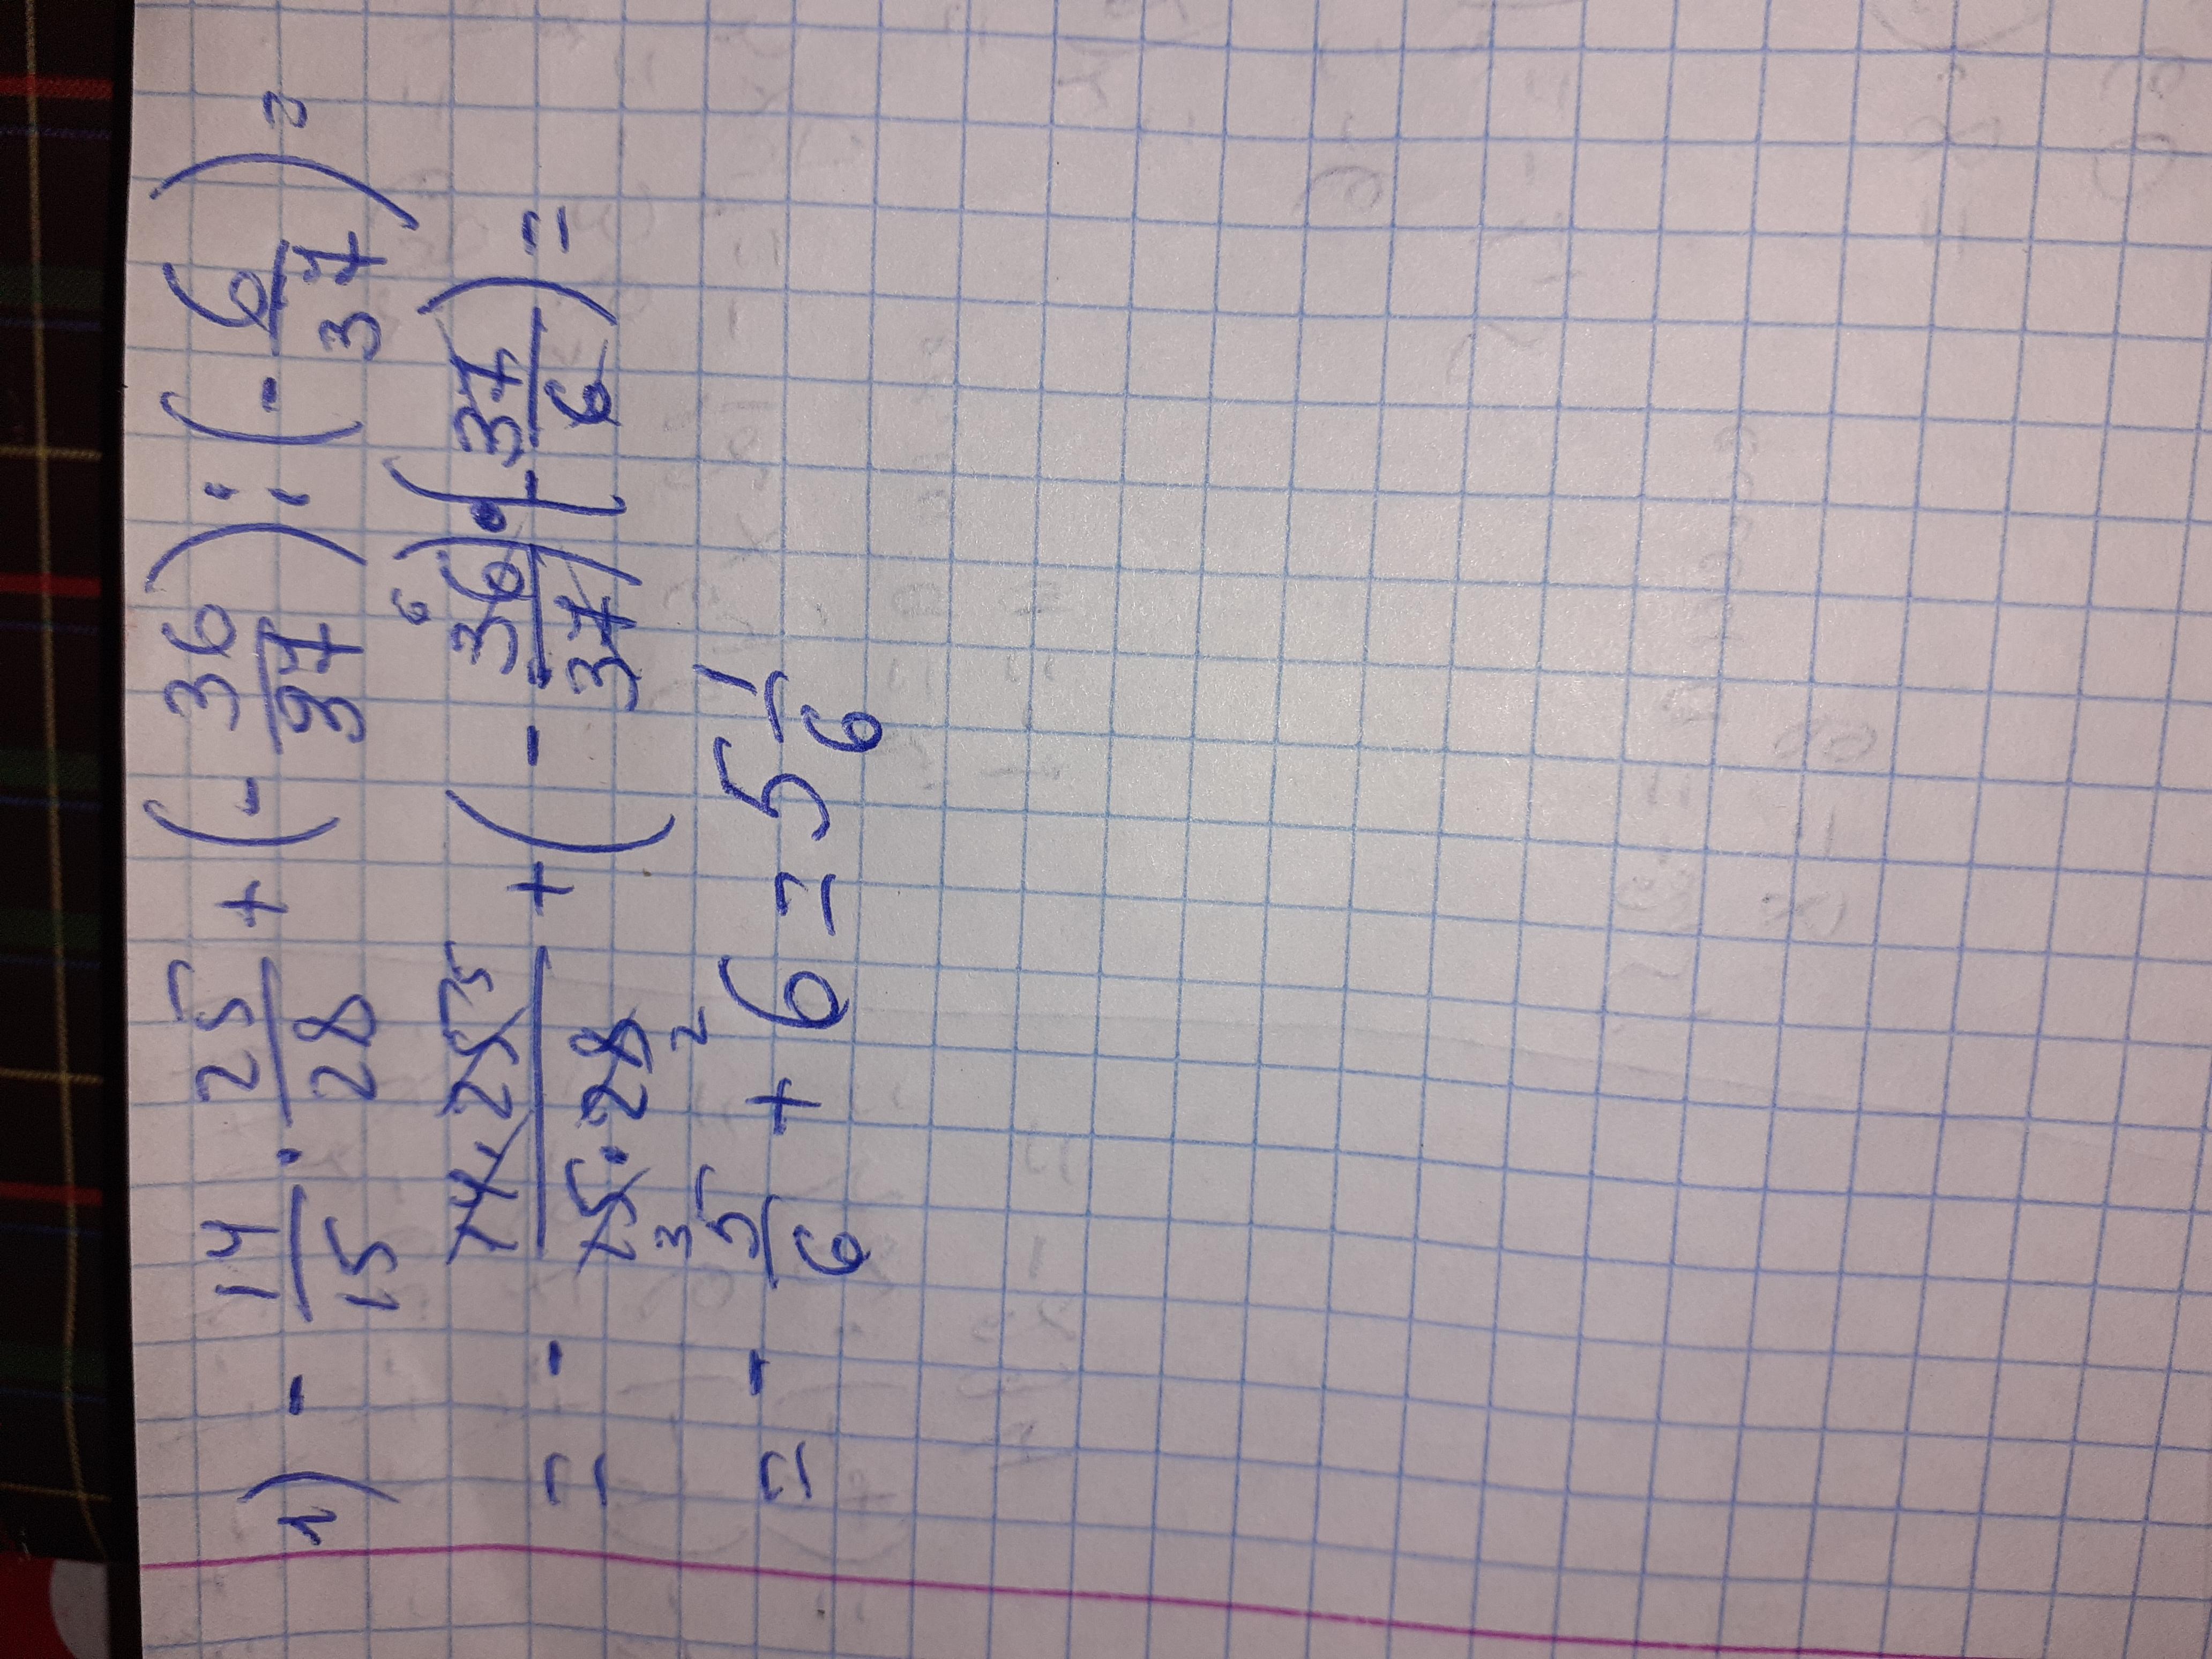 1) - 14/15 · 25/28 + (- 36/37) : (- 6/37) =
= - 14·25 5/15·28 3 2 + (- 36 6/37) · (- 37/6) =
= - 5/6 + 6 = 5 1/6